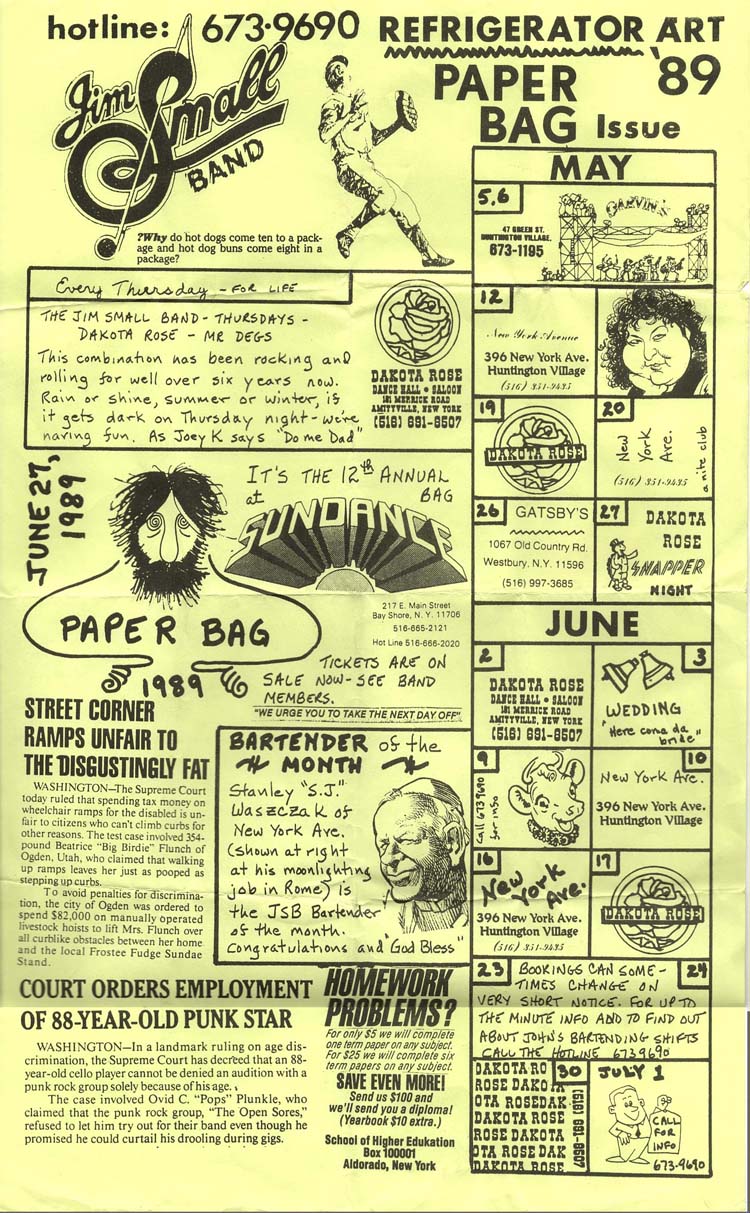 hotline: 673-9690
REFRIGERATOR ART
'89
PAPER
BAG Issue
Jim
Small
BAND
?Why do hot dogs come ten to a pack-
age and hot dog buns come eight in a
package?
Every Thursday - FOR LIFE
THE JIM SMALL BAND - THURSDAYS -
DAKOTA ROSE - MR DEGS
This combination has been rocking and
rolling for well over six years now.
Rain or shine, summer or winter, if
it gets dark on Thursday night - we're
having fun. As Joey K says "Do me Dad"
DAKOTA ROSE
DANCE HALL • SALOON
181 MERRICK ROAD
AMITYVILLE, NEW YORK
(516) 691-8507
JUNE 27,
1989
IT'S THE 12th ANNUAL
at
BAG
SUNDANCE
217 E. Main Street
Bay Shore, N. Y. 11706
516-665-2121
Hot Line 516-666-2020
PAPER BAG
1989
TICKETS ARE ON
SALE NOW - SEE BAND
MEMBERS.
"WE URGE YOU TO TAKE THE NEXT DAY OFF"
STREET CORNER
RAMPS UNFAIR TO
THE DISGUSTINGLY FAT
WASHINGTON—The Supreme Court
today ruled that spending tax money on
wheelchair ramps for the disabled is un-
fair to citizens who can't climb curbs for
other reasons. The test case involved 354-
pound Beatrice "Big Birdie" Flunch of
Ogden, Utah, who claimed that walking
up ramps leaves her just as pooped as
stepping up curbs.
To avoid penalties for discrimina-
tion, the city of Ogden was ordered to
spend $82,000 on manually operated
livestock hoists to lift Mrs. Flunch over
all curblike obstacles between her home
and the local Frostee Fudge Sundae
Stand.
BARTENDER of the
MONTH
Stanley "S.J."
Waszczak of
New York Ave.
(shown at right
at his moonlighting
job in Rome) is
the JSB Bartender
of the month.
Congratulations and "God Bless"
COURT ORDERS EMPLOYMENT
OF 88-YEAR-OLD PUNK STAR
WASHINGTON—In a landmark ruling on age dis-
crimination, the Supreme Court has decreed that an 88-
year-old cello player cannot be denied an audition with a
punk rock group solely because of his age.
The case involved Ovid C. "Pops" Plunkle, who
claimed that the punk rock group, "The Open Sores,"
refused to let him try out for their band even though he
promised he could curtail his drooling during gigs.
HOMEWORK
PROBLEMS?
For only $5 we will complete
one term paper on any subject.
For $25 we will complete six
term papers on any subject.
SAVE EVEN MORE!
Send us $100 and
we'll send you a diploma!
(Yearbook $10 extra.)
School of Higher Edukation
Box 100001
Aldorado, New York
MAY
5,6
GARVIN'S
47 GREEN ST.
HUNTINGTON VILLAGE.
673-1195
12
New York Avenue
396 New York Ave.
Huntington Village
(516) 351-9435
19
DAKOTA ROSE
20
New
York
Ave.
(516) 351-9435
a nite club
26
GATSBY'S
1067 Old Country Rd.
Westbury, N.Y. 11596
(516) 997-3685
27
DAKOTA
ROSE
SNAPPER
NIGHT
JUNE
2
DAKOTA ROSE
DANCE HALL • SALOON
181 MERRICK ROAD
AMITYVILLE, NEW YORK
(516) 691-8507
3
WEDDING
"Here coma da
bride"
9
Call 673 9690
for info
10
New York Ave.
396 New York Ave.
Huntington Village
16
New
York
Ave.
396 New York Ave.
Huntington Village
(516) 351-9435
17
DAKOTA ROSE
23
24
BOOKINGS CAN SOME-
TIMES CHANGE ON
VERY SHORT NOTICE. FOR UP TO
THE MINUTE INFO AND TO FIND OUT
ABOUT JOHN'S BARTENDING SHIFTS
CALL THE HOTLINE 673 9690
30
DAKOTA RO
ROSE DAKOTA
OTA ROSE DAK
ROSE DAKOTA
ROSE DAKOTA
OTA ROSE DAK
DAKOTA ROSE
(516) 691-8507
JULY 1
CALL
FOR
INFO
673-9690